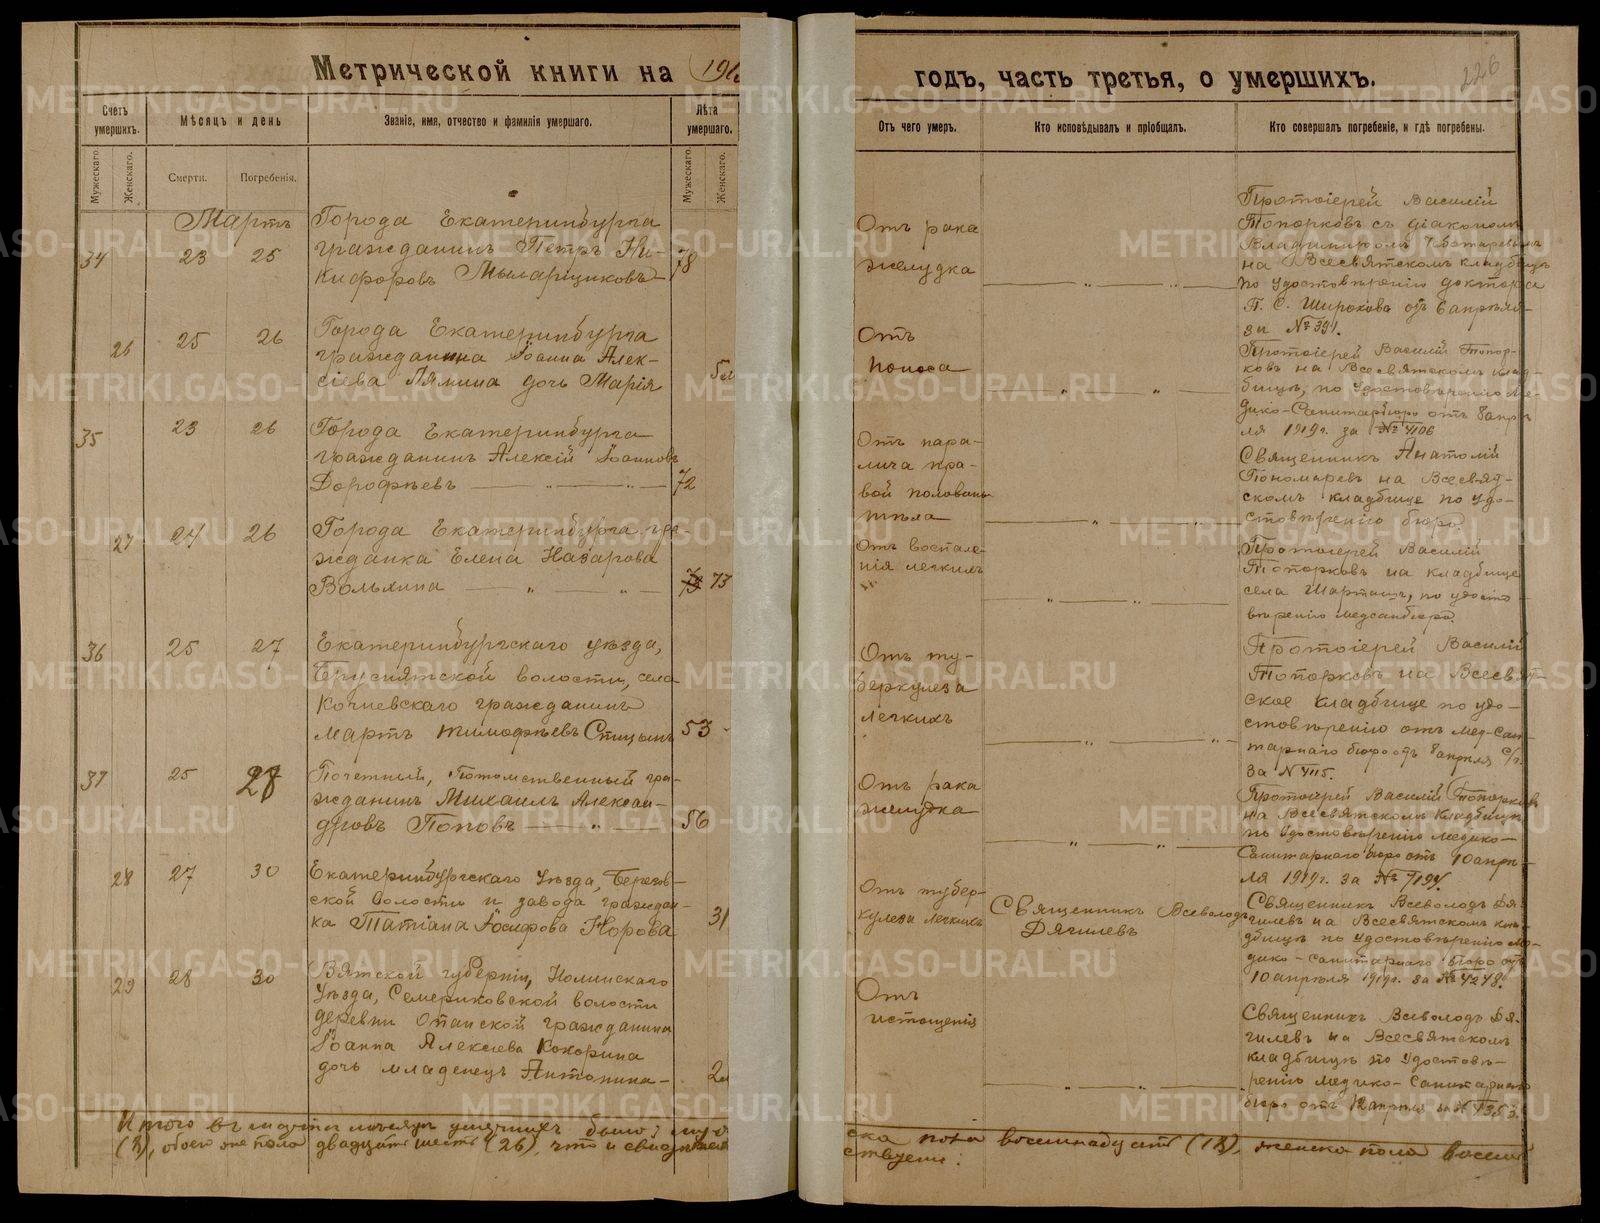 Метрической книги на 191
годъ, часть третья, о умершихъ.
226
Счетъ умершихъ.
Мѣсяцъ и день
Званіе, имя, отчество и фамилія умершаго.
Лѣта умершаго.
Отъ чего умеръ.
Кто исповѣдывалъ и пріобщалъ.
Кто совершалъ погребеніе, и гдѣ погребены.
Мужескаго.
Женскаго.
Смерти.
Погребенія.
Мужескаго.
Женскаго.
Мартъ
34
23
25
Города Екатеринбурга
гражданинъ Петръ Ни-
кифоровъ Мыларщиковъ
78
Отъ рака
желудка
Протоіерей Василій
Топорковъ съ діакономъ
Владимиромъ
на Всесвятскомъ кладбищѣ
по удостовѣренію доктора
П. С. Широкова отъ 6 апрѣля
за № 391.
26
25
26
Города Екатеринбурга
гражданина Іоанна Алек-
сіева Лямина дочь Марія
5 м
Отъ
поноса
Протоіерей Василій Топор-
ковъ на Всесвятскомъ клад-
бищѣ, по удостовѣренію Ме-
дико-Санитар. бюро отъ 8 апрѣ-
ля 1919 г. за № 4106
35
23
26
Города Екатеринбурга
гражданинъ Алексій Іоанновъ
Дорофѣевъ
72
Отъ пара-
лича пра-
вой половины
тѣла
Священникъ Анатолій
Пономаревъ на Всесвят-
скомъ кладбище по удо-
стовѣренію бюро.
27
24
26
Города Екатеринбурга гра
жданка Елена Назарова
Вольхина
73
Отъ воспале-
нія легкихъ
Протоіерей Василій
Топорковъ на кладбище
села Шарташъ, по удосто-
вѣренію медсанбюро.
36
25
27
Екатеринбургскаго уѣзда,
Бруснятской волости, села
Кочневскаго гражданинъ
Мартъ Тимофѣевъ Спицынъ
53
Отъ ту-
беркулеза
легкихъ
Протоіерей Василій
Топорковъ на Всесвят-
ское кладбище по удо-
стовѣренію отъ Мед-Сан-
тарнаго бюро отъ 8 апрѣля с/г.
за № 4115.
37
25
28
Почетный, Потомственный гра-
жданинъ Михаилъ Алексан-
дровъ Поповъ
56
Отъ рака
желудка
Протоіерей Василій Топорковъ
на Всесвятскомъ кладбищѣ
по удостовѣренію Медико-
Санитарнаго бюро отъ 10 апрѣ-
ля 1919 г. за № 4194.
28
27
30
Екатеринбургскаго уѣзда, Березов-
ской волости и завода граждан-
ка Татіана Іосифова Норова
31
Отъ тубер-
кулеза легкихъ
Священникъ Всеволодъ
Дягилевъ
Священникъ Всеволодъ Дя-
гилевъ на Всесвятскомъ кла-
дбищѣ по удостовѣренію Ме-
дико-санитарнаго бюро отъ
10 апрѣля 1919 г. за № 4248.
29
28
30
Вятской губерніи, Нолинскаго
уѣзда, Семериковской волости
деревни Опанской гражданина
Іоанна Алексѣева Кокорина
дочь младенецъ Антонина
2 м
Отъ
истощенія
Священникъ Всеволодъ Дя-
гилевъ на Всесвятскомъ
кладбищѣ по удостовѣ-
ренію Медико-санитарнаго
бюро отъ 12 апрѣля за № 4353.
Итого въ мартѣ мѣсяцѣ умершихъ было: муже-
ска пола восемнадцать (18), женска пола восемь
(8), обоего же пола двадцать шесть (26), что и свидѣтель-
ствуемъ:
METRIKI.GASO-URAL.RU